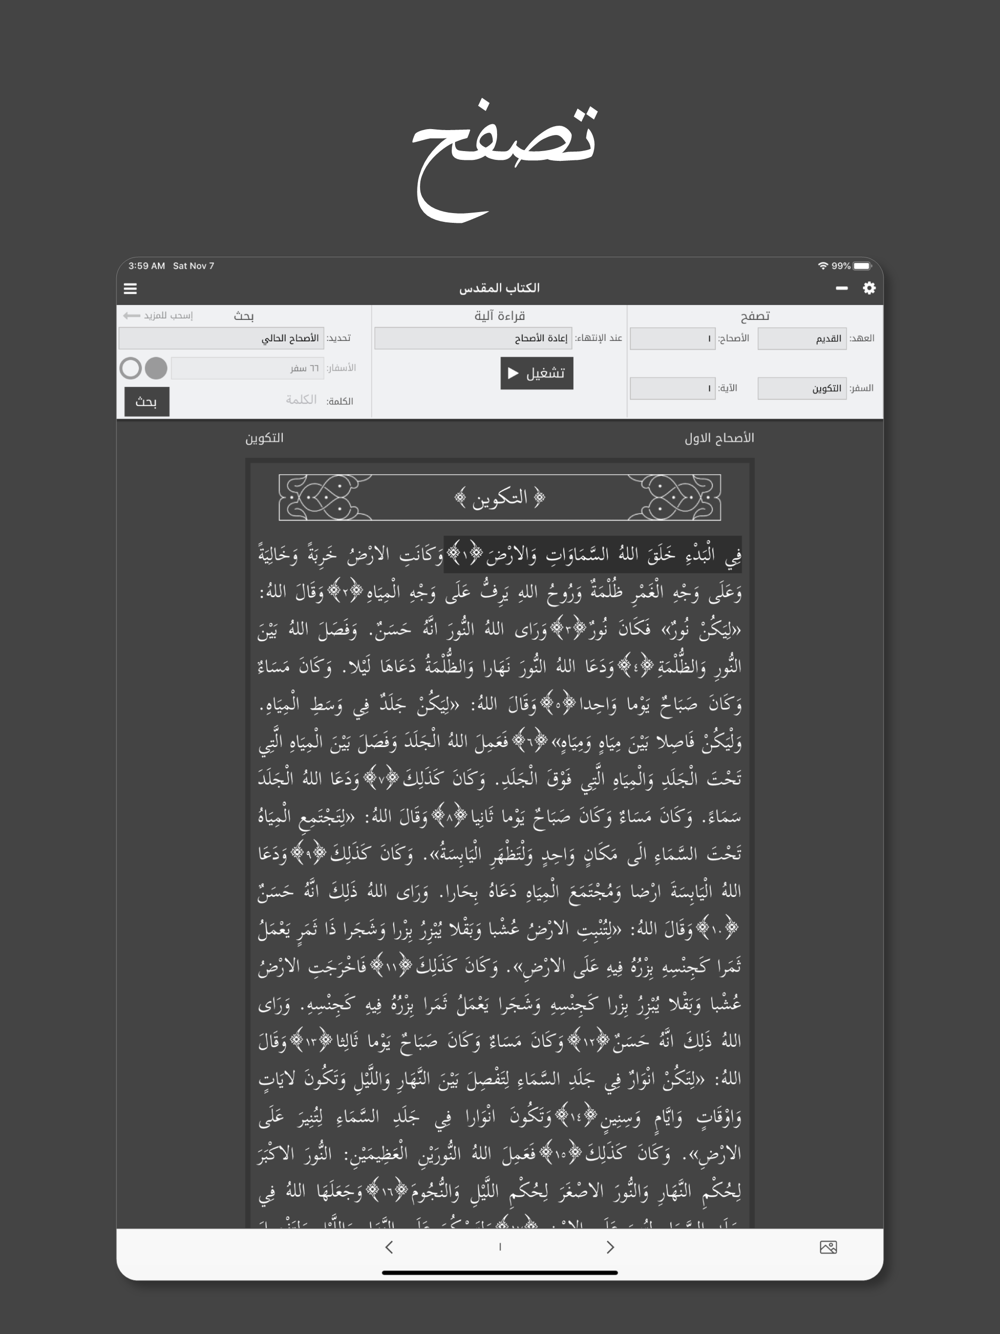 تصفح
3:59 AM Sat Nov 7
99%
الكتاب المقدس
تصفح
العهد: القديم الأصحاح: ١
السفر: التكوين الآية: ١
قراءة آلية
عند الإنتهاء: إعادة الأصحاح
تشغيل
بحث إسحب للمزيد
تحديد: الأصحاح الحالي
الأسفار: ٦٦ سفر
الكلمة: الكلمة بحث
الأصحاح الاول التكوين
﴿ التكوين ﴾
فِي الْبَدْءِ خَلَقَ اللهُ السَّمَاوَاتِ وَالارْضَ﴿١﴾وَكَانَتِ الارْضُ خَرِبَةً وَخَالِيَةً
وَعَلَى وَجْهِ الْغَمْرِ ظُلْمَةٌ وَرُوحُ اللهِ يَرِفُّ عَلَى وَجْهِ الْمِيَاهِ﴿٢﴾وَقَالَ اللهُ:
«لِيَكُنْ نُورٌ» فَكَانَ نُورٌ﴿٣﴾وَرَاى اللهُ النُّورَ انَّهُ حَسَنٌ. وَفَصَلَ اللهُ بَيْنَ
النُّورِ وَالظُّلْمَةِ﴿٤﴾وَدَعَا اللهُ النُّورَ نَهَارا وَالظُّلْمَةُ دَعَاهَا لَيْلا. وَكَانَ مَسَاءٌ
وَكَانَ صَبَاحٌ يَوْما وَاحِدا﴿٥﴾وَقَالَ اللهُ: «لِيَكُنْ جَلَدٌ فِي وَسَطِ الْمِيَاهِ.
وَلْيَكُنْ فَاصِلا بَيْنَ مِيَاهٍ وَمِيَاهٍ»﴿٦﴾فَعَمِلَ اللهُ الْجَلَدَ وَفَصَلَ بَيْنَ الْمِيَاهِ الَّتِي
تَحْتَ الْجَلَدِ وَالْمِيَاهِ الَّتِي فَوْقَ الْجَلَدِ. وَكَانَ كَذَلِكَ﴿٧﴾وَدَعَا اللهُ الْجَلَدَ
سَمَاءً. وَكَانَ مَسَاءٌ وَكَانَ صَبَاحٌ يَوْما ثَانِيا﴿٨﴾وَقَالَ اللهُ: «لِتَجْتَمِعِ الْمِيَاهُ
تَحْتَ السَّمَاءِ الَى مَكَانٍ وَاحِدٍ وَلْتَظْهَرِ الْيَابِسَةُ». وَكَانَ كَذَلِكَ﴿٩﴾وَدَعَا
اللهُ الْيَابِسَةَ ارْضا وَمُجْتَمَعَ الْمِيَاهِ دَعَاهُ بِحَارا. وَرَاى اللهُ ذَلِكَ انَّهُ حَسَنٌ
﴿١٠﴾وَقَالَ اللهُ: «لِتُنْبِتِ الارْضُ عُشْبا وَبَقْلا يُبْزِرُ بِزْرا وَشَجَرا ذَا ثَمَرٍ يَعْمَلُ
ثَمَرا كَجِنْسِهِ بِزْرُهُ فِيهِ عَلَى الارْضِ». وَكَانَ كَذَلِكَ﴿١١﴾فَاخْرَجَتِ الارْضُ
عُشْبا وَبَقْلا يُبْزِرُ بِزْرا كَجِنْسِهِ وَشَجَرا يَعْمَلُ ثَمَرا بِزْرُهُ فِيهِ كَجِنْسِهِ. وَرَاى
اللهُ ذَلِكَ انَّهُ حَسَنٌ﴿١٢﴾وَكَانَ مَسَاءٌ وَكَانَ صَبَاحٌ يَوْما ثَالِثا﴿١٣﴾وَقَالَ
اللهُ: «لِتَكُنْ انْوَارٌ فِي جَلَدِ السَّمَاءِ لِتَفْصِلَ بَيْنَ النَّهَارِ وَاللَّيْلِ وَتَكُونَ لايَاتٍ
وَاوْقَاتٍ وَايَّامٍ وَسِنِينٍ﴿١٤﴾وَتَكُونَ انْوَارا فِي جَلَدِ السَّمَاءِ لِتُنِيرَ عَلَى
الارْضِ». وَكَانَ كَذَلِكَ﴿١٥﴾فَعَمِلَ اللهُ النُّورَيْنِ الْعَظِيمَيْنِ: النُّورَ الاكْبَرَ
لِحُكْمِ النَّهَارِ وَالنُّورَ الاصْغَرَ لِحُكْمِ اللَّيْلِ وَالنُّجُومَ﴿١٦﴾وَجَعَلَهَا اللهُ فِي
١